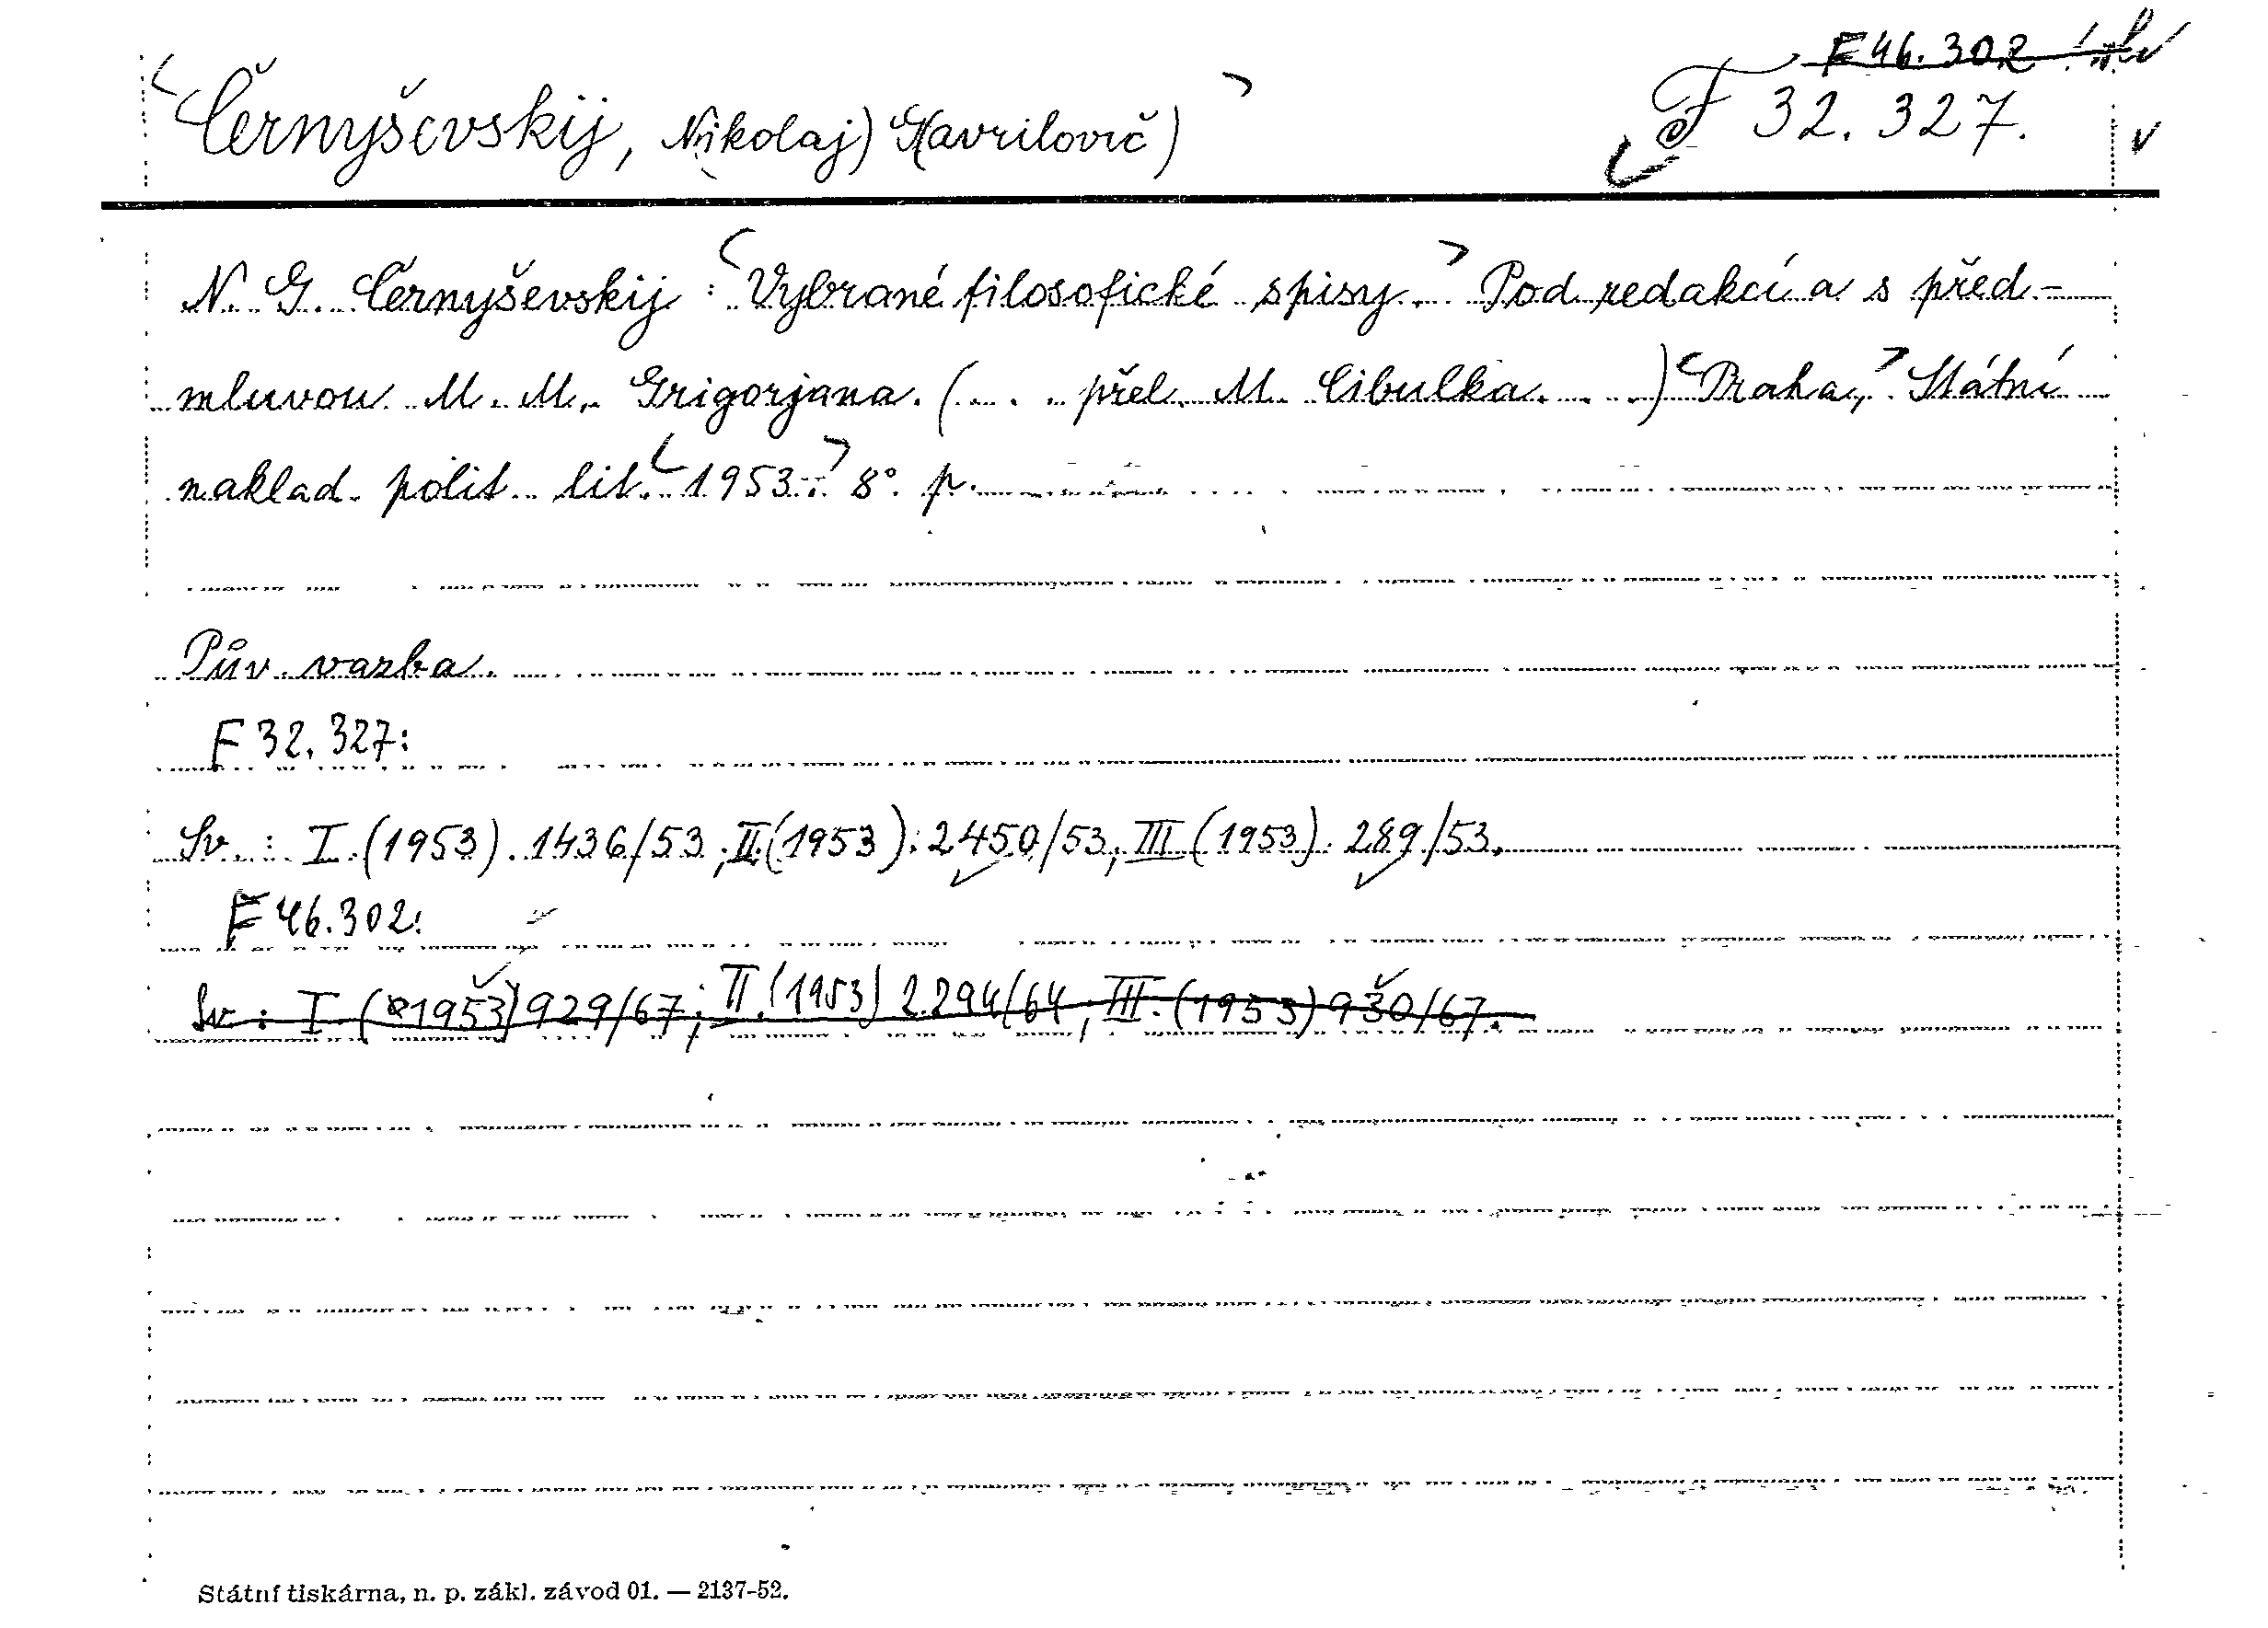 F 46.302
Černyševskij, Nikolaj) G(avrilovič)
F 32.327.
N. G. Černyševskij: Vybrané filosofické spisy. Pod redakcí a s před-
mluvou M. M. Grigorjana. (... přel. M. Cibulka...) Praha, Státní
naklad. polit. lit. 1953. 8°. p.
Pův. vazba.
F 32.327:
Sv.: I. (1953). 1436/53; II. (1953): 2450/53; III (1953). 289/53.
F 46.302:
Sv.: I. (1953) 929/67; II. (1953) 2.294/64; III. (1953) 930/67.
Státní tiskárna, n. p. zákl. závod 01. — 2137-52.